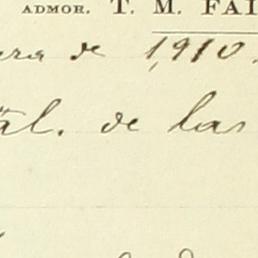 ADMOR. T. M. FAI
ra de 1,910.
al. de las